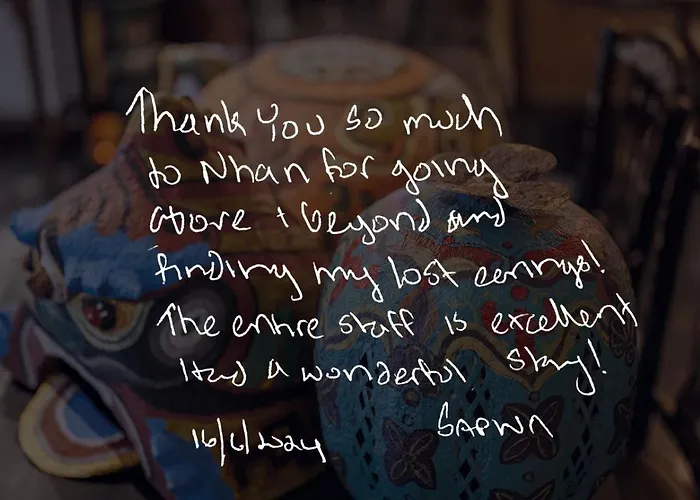 Thank You so much
to Nhan for going
above + beyond and
finding my lost earrings!
The entire staff is excellent
Had a wonderful stay!
16/6/2024